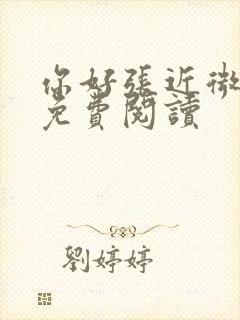 你好張近微
免費閱讀
劉婷婷